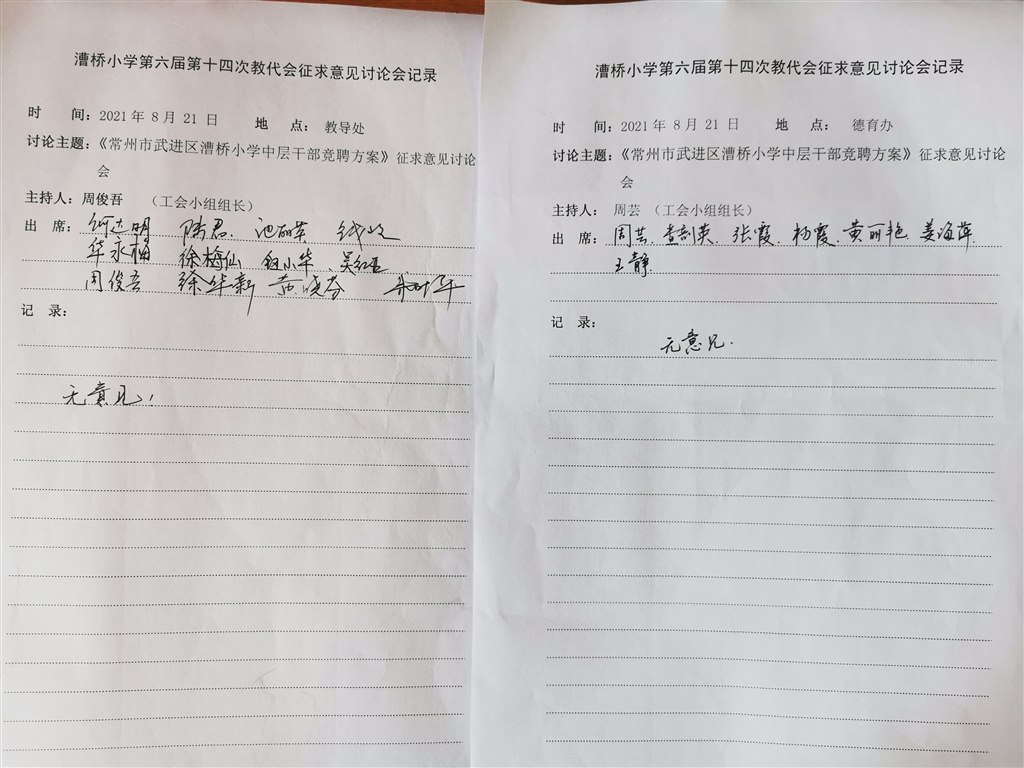 漕桥小学第六届第十四次教代会征求意见讨论会记录
时 间：2021 年 8 月 21 日 地 点： 教导处
讨论主题：《常州市武进区漕桥小学中层干部竞聘方案》征求意见讨论
会
主持人：周俊吾 （工会小组组长）
出 席： 陆君
华永梅 徐梅仙 钮小华 吴红玉
周俊吾 徐华新 黄晓芬
记 录：
无意见！
漕桥小学第六届第十四次教代会征求意见讨论会记录
时 间：2021 年 8 月 21 日 地 点： 德育办
讨论主题：《常州市武进区漕桥小学中层干部竞聘方案》征求意见讨论
会
主持人： 周芸 （工会小组组长）
出 席： 周芸、 张霞、杨霞、黄丽艳、姜海萍
王静
记 录：
无意见.